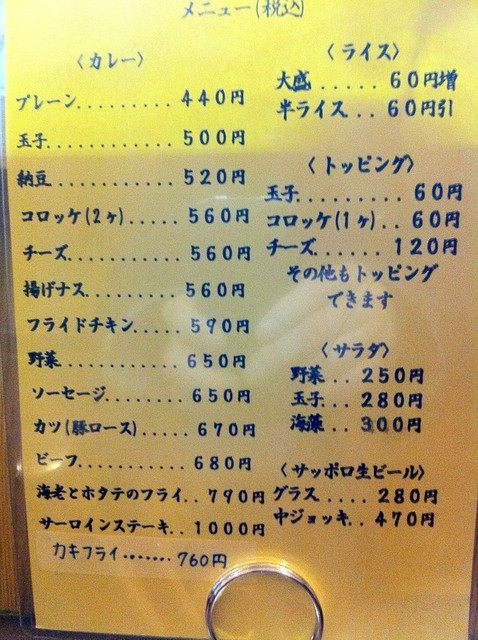 メニュー(税込)
〈カレー〉
プレーン.......... 440円
玉子............ 500円
納豆............ 520円
コロッケ(2ヶ)..... 560円
チーズ........... 560円
揚げナス......... 560円
フライドチキン..... 590円
野菜............ 650円
ソーセージ........ 650円
カツ(豚ロース)..... 670円
ビーフ.......... 680円
海老とホタテのフライ.. 790円
サーロインステーキ.. 1000円
カキフライ....... 760円
〈ライス〉
大盛 ..... 60円増
半ライス... 60円引
〈トッピング〉
玉子......... 60円
コロッケ(1ヶ).. 60円
チーズ....... 120円
その他もトッピング
できます
〈サラダ〉
野菜 .. 250円
玉子 ... 280円
海藻 .. 300円
〈サッポロ生ビール〉
グラス..... 280円
中ジョッキ.. 470円